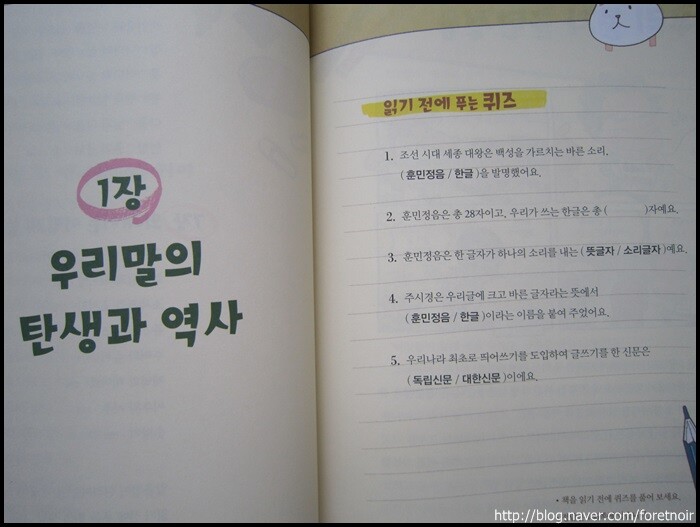 1장
우리말의
탄생과 역사
읽기 전에 푸는 퀴즈
1. 조선 시대 세종 대왕은 백성을 가르치는 바른 소리,
( 훈민정음 / 한글 )을 발명했어요.
2. 훈민정음은 총 28자이고, 우리가 쓰는 한글은 총 (          )자예요.
3. 훈민정음은 한 글자가 하나의 소리를 내는 ( 뜻글자 / 소리글자 )예요.
4. 주시경은 우리글에 크고 바른 글자라는 뜻에서
( 훈민정음 / 한글 )이라는 이름을 붙여 주었어요.
5. 우리나라 최초로 띄어쓰기를 도입하여 글쓰기를 한 신문은
( 독립신문 / 대한신문 )이에요.
• 책을 읽기 전에 퀴즈를 풀어 보세요.
http://blog.naver.com/foretnoir